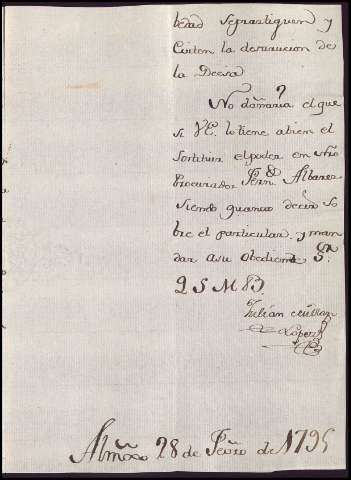 bedad se practiquen y
Eviten la destrucion de
la Deesa
No dañaria el que
si VE. lo tiene abien el
sortituir el poder en ntrô
Procurador Fern.do Albarez
siendo quanto decir so
bre el particular. y man
dar a su obediente S.or
Q S M B
Julián
Lopez
Almõ 28 de Fe̅ro de 1795